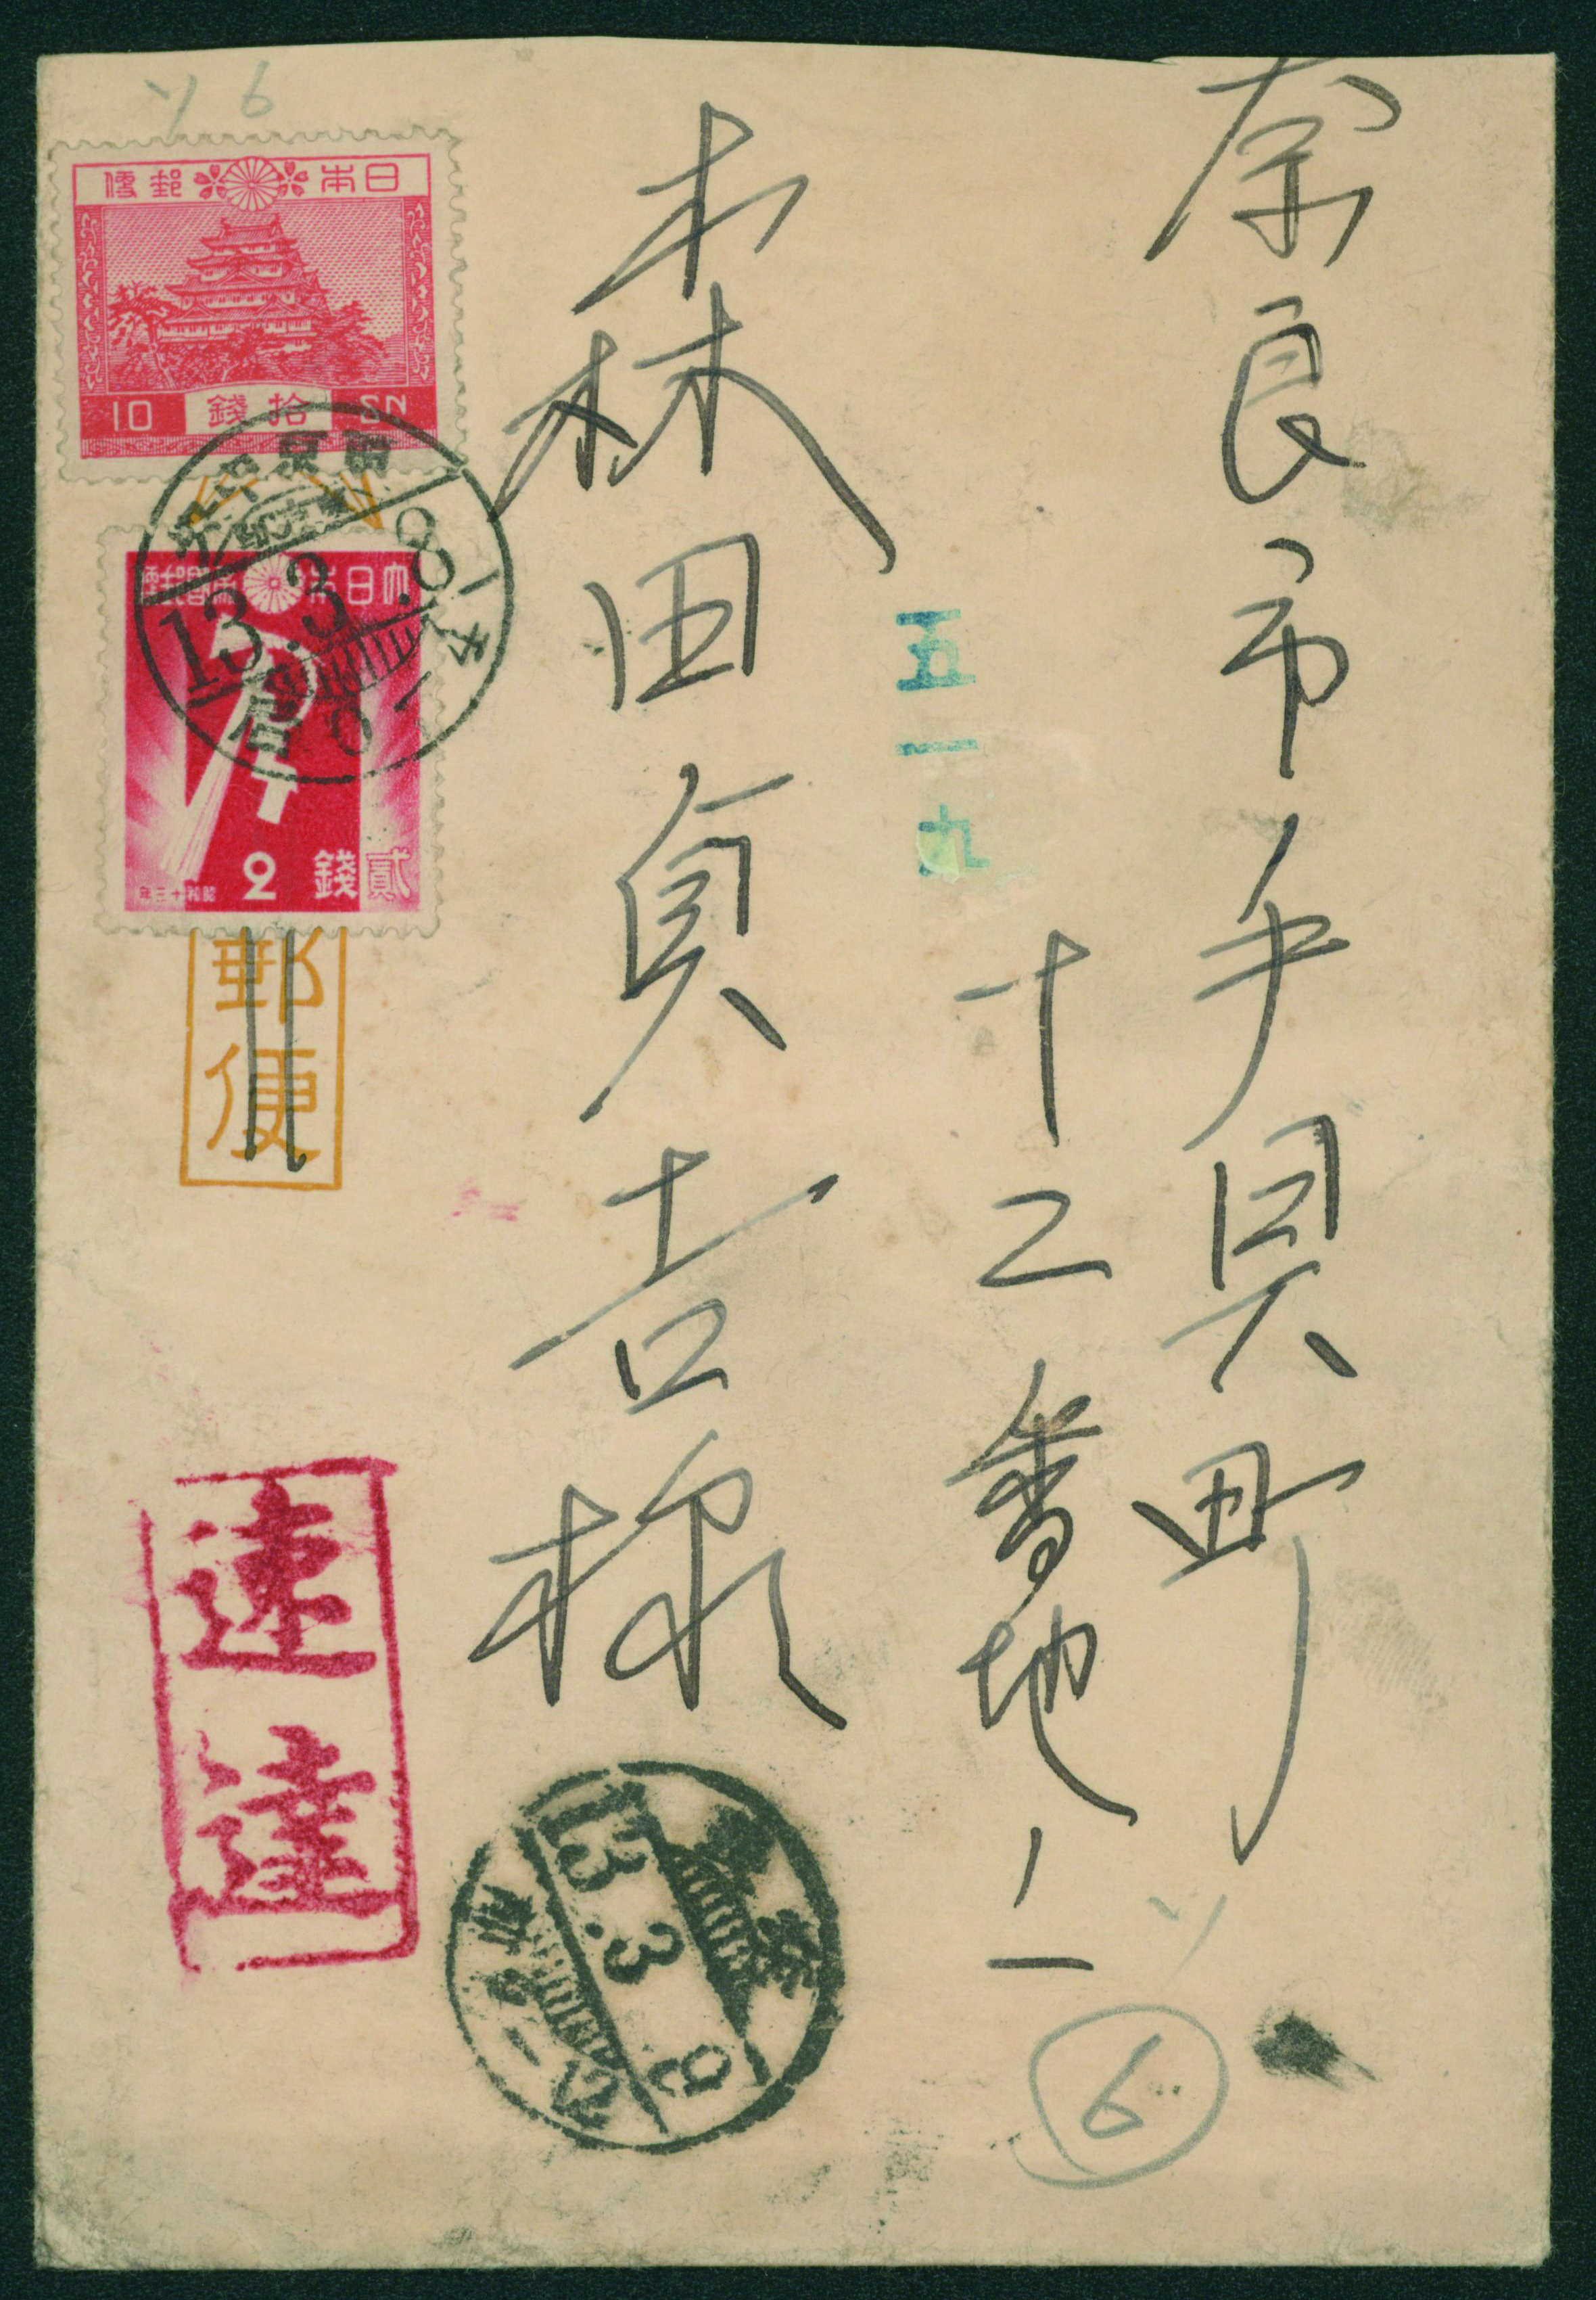 奈良市手貝町
十二番地ノ一
五一九
森田貞吉様
日本郵便
10 拾錢 SN
大日本帝國郵便
2 貳錢
昭和十三年
13.3.8
郵便
速達
奈良
13.3.9
6
6